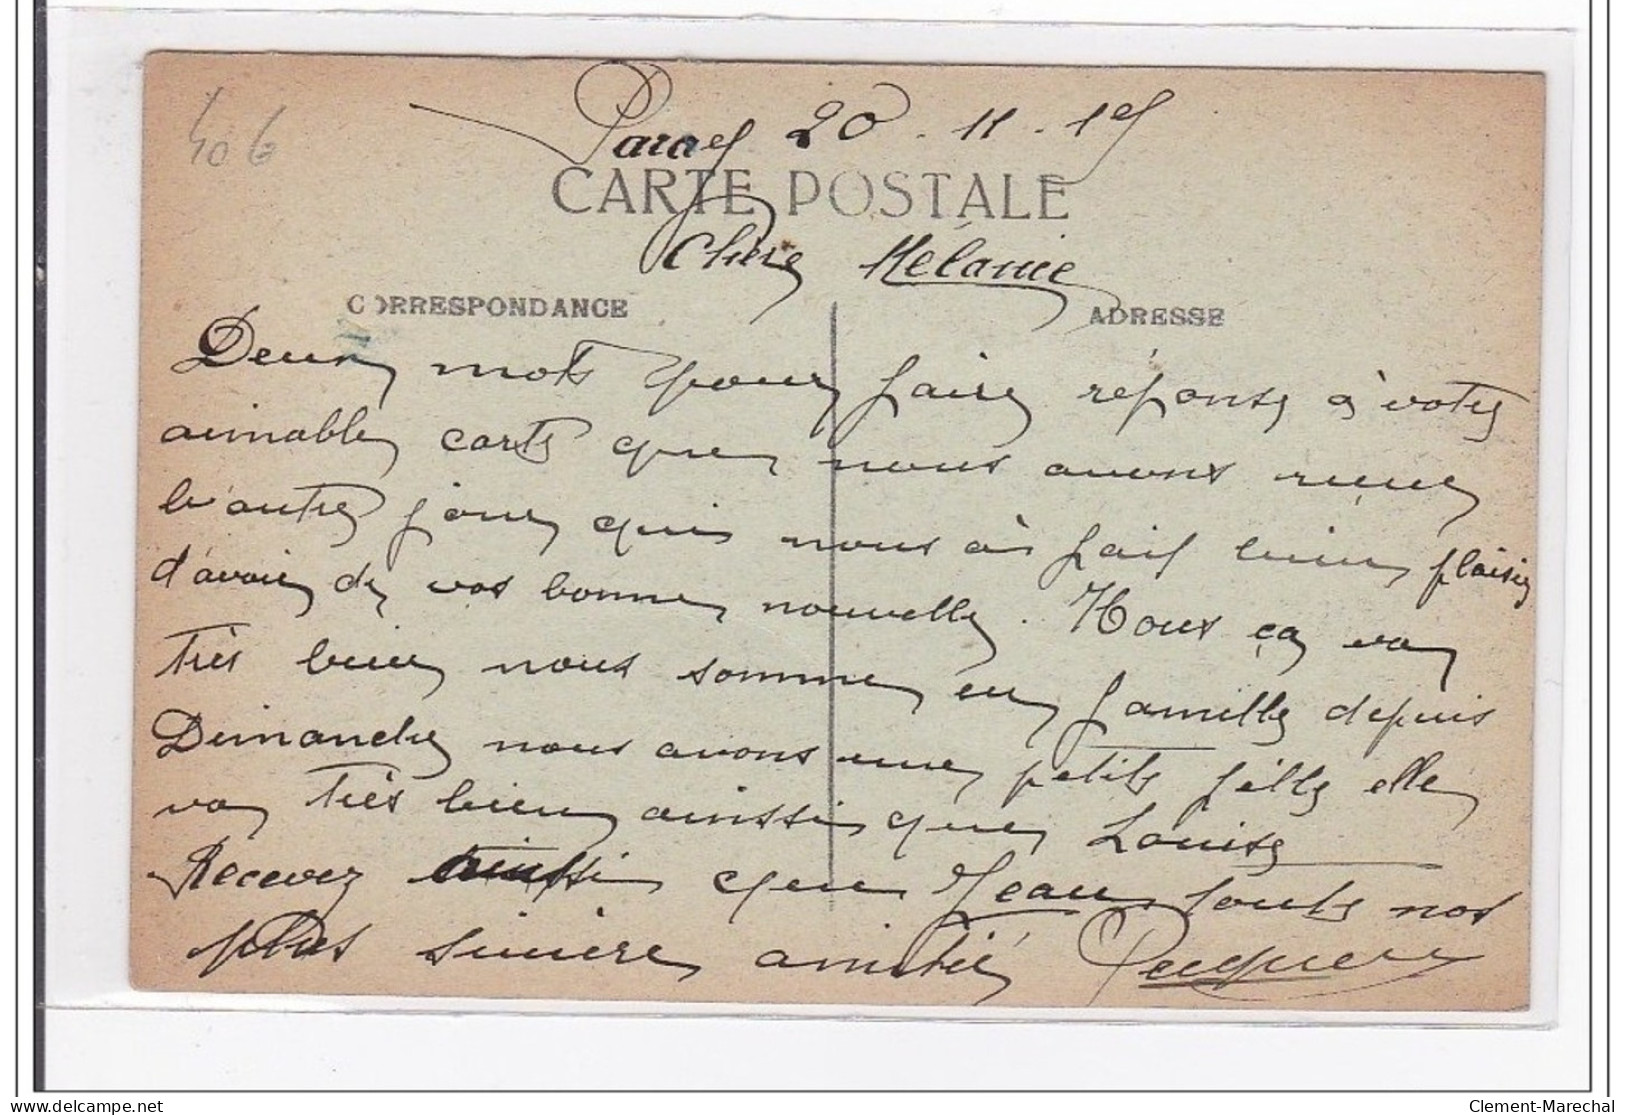 406
20 . 11 . 19
CARTE POSTALE
Chère Mélanie
CORRESPONDANCE
ADRESSE
Deux mots pour faire réponse à votre
aimable carte que nous avons reçue
l'autre jour qui nous à fait bien plaisir
d'avoir de vos bonne nouvelle. Nous ça va
très bien nous somme en famille depuis
Dimanche nous avons une petite fille elle
va très bien ainssi que Louise
Recevez ainssi que Jean toute nos
plus sincère amitié
delcampe.net
Clement-Marechal